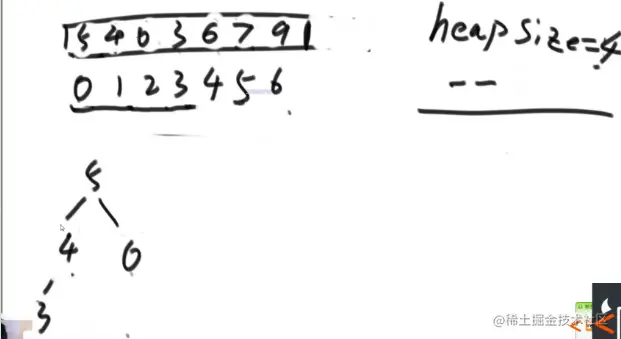 5 4 0 3 6 7 9
heapsize=4
0 1 2 3 4 5 6
--
5
4 0
3
@稀土掘金技术社区